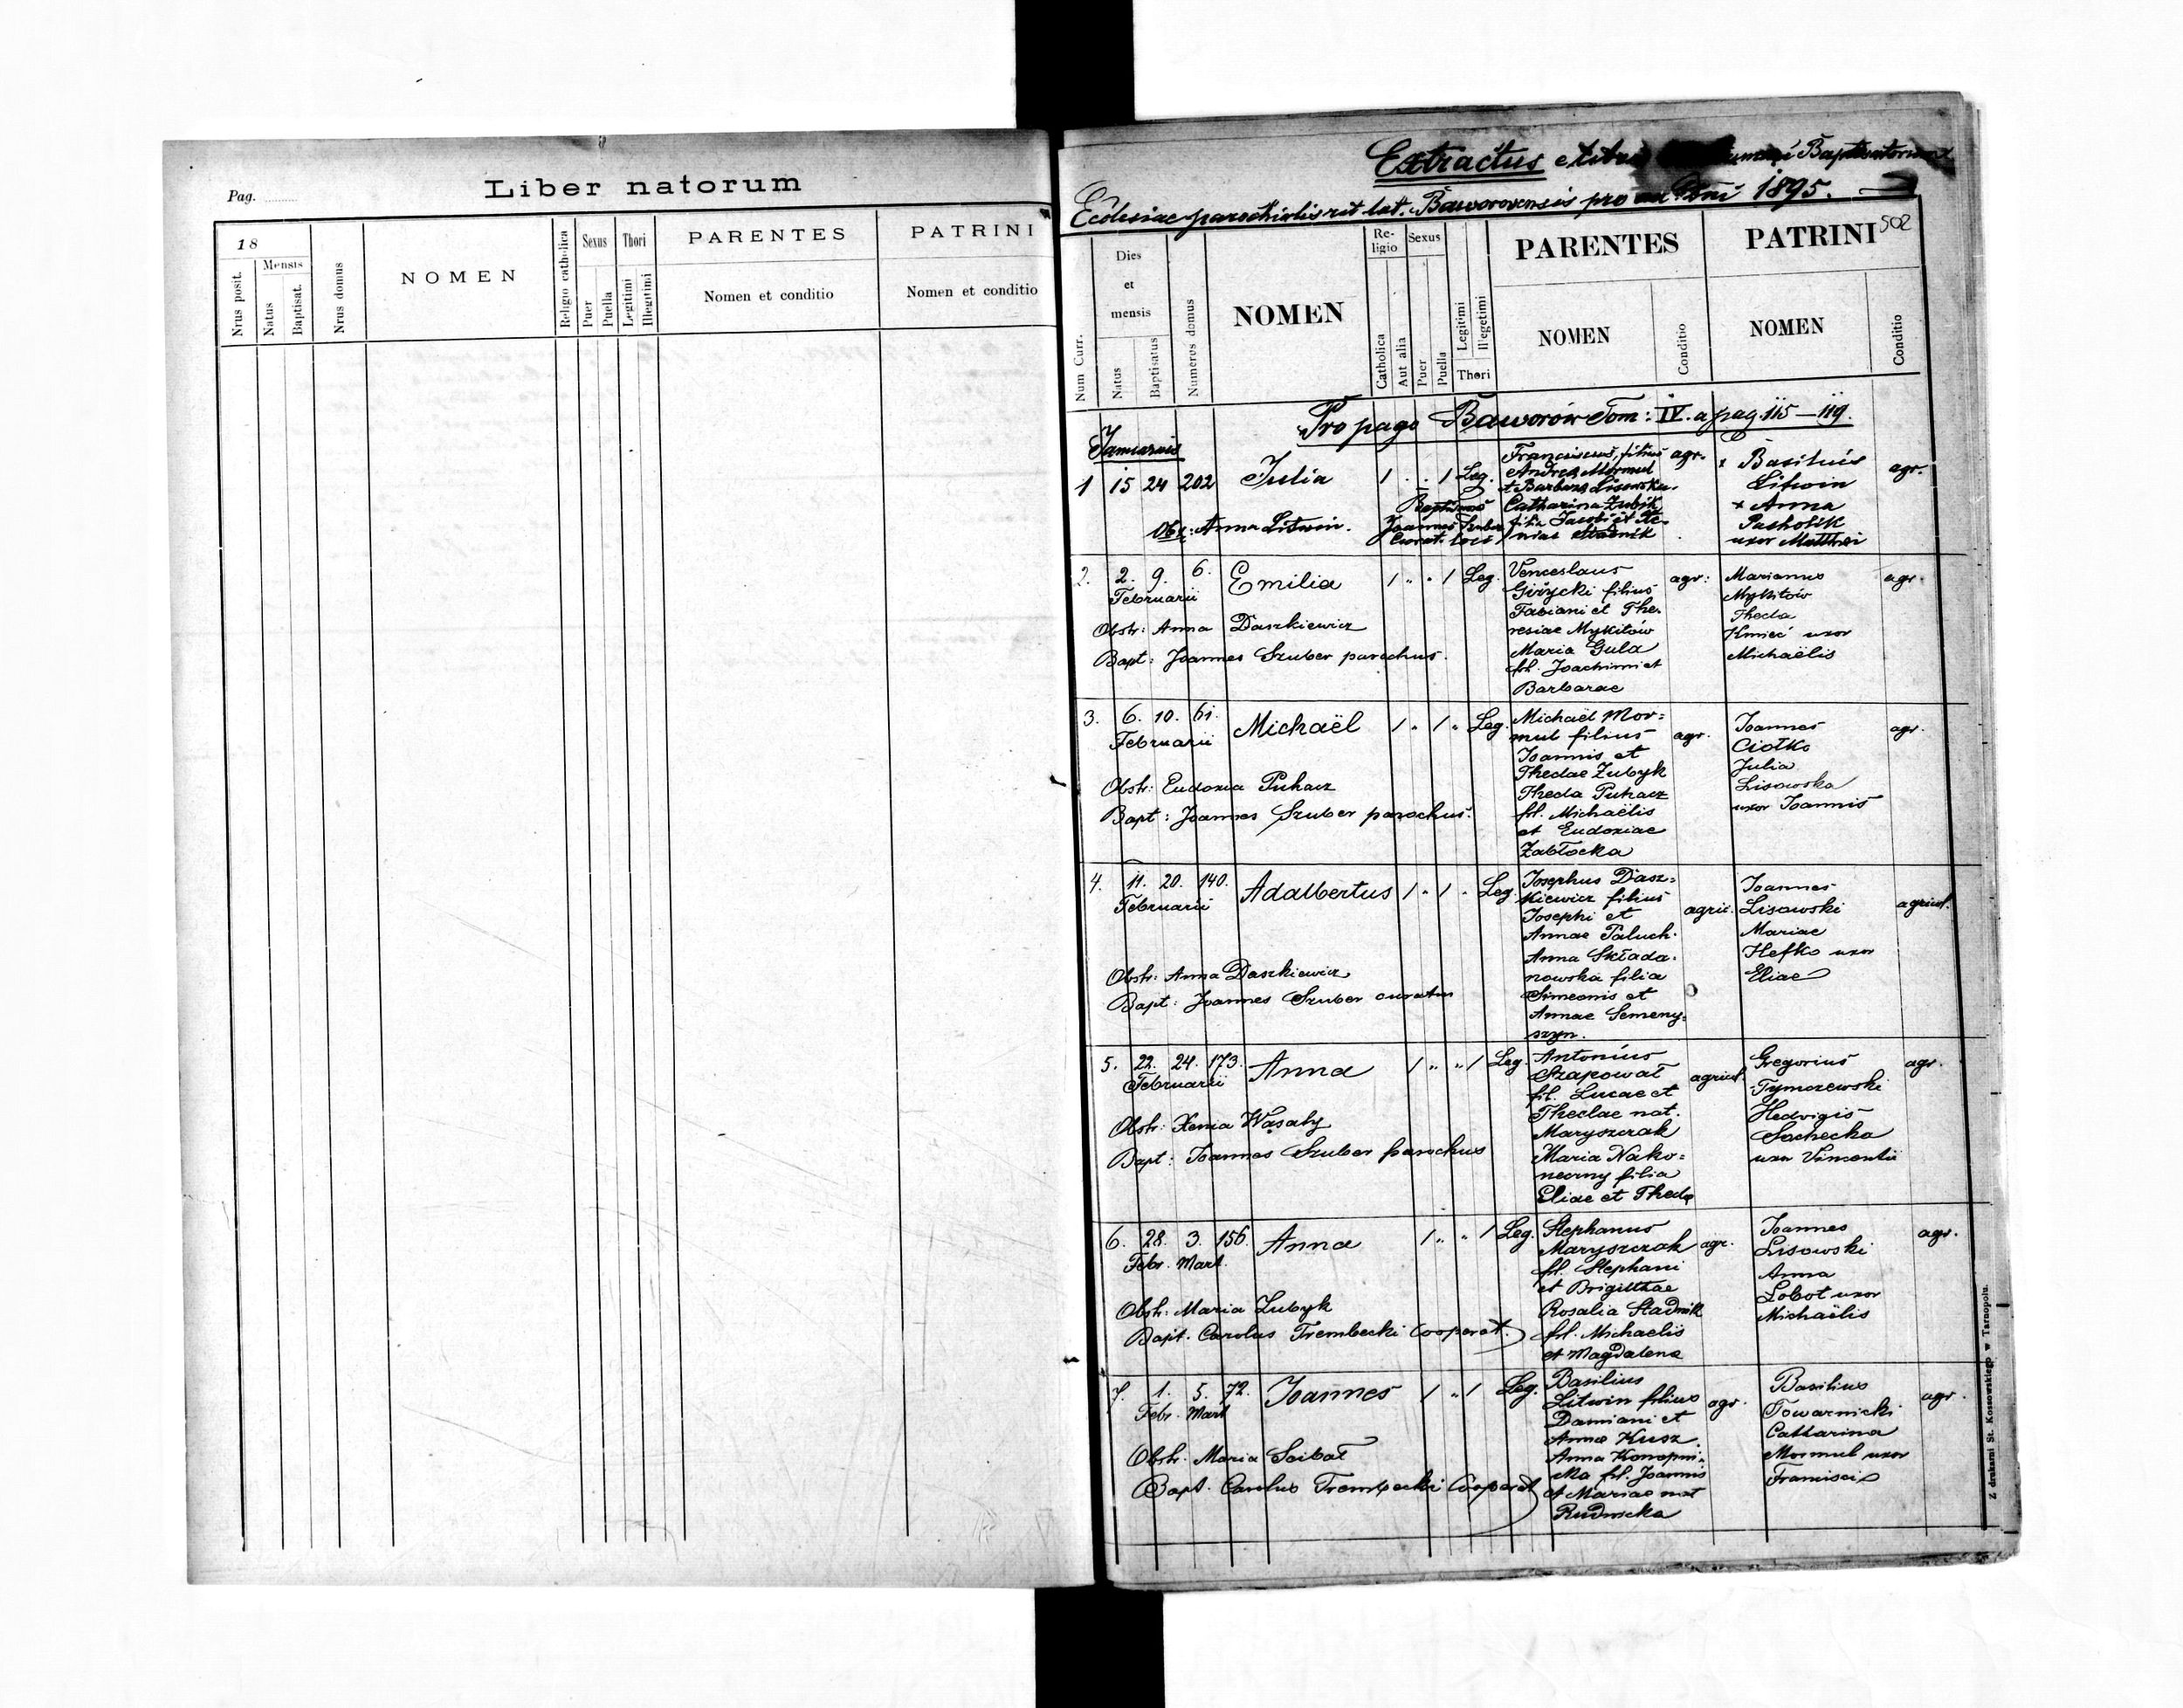 Pag.
Liber natorum
18
Mensis
Nrus posit.
Natus
Baptisat.
Nrus domus
NOMEN
Religio catholica
Sexus
Puer
Puella
Thori
Legitimi
Illegitimi
PARENTES
Nomen et conditio
PATRINI
Nomen et conditio
Extractus Baptisatorum
Ecclesiae parochialis rit. lat. Baworovensis pro Dni 1895.
502
Num Curr.
Dies
et
mensis
Natus
Baptisatus
Numerus domus
NOMEN
Re-
ligio
Catholica
Aut alia
Sexus
Puer
Puella
Legitimi
Illegetimi
Thori
PARENTES
NOMEN
Conditio
PATRINI
NOMEN
Conditio
Pro pago Baworów Tom: IV. a pag. 115 — 119.
Januarius
1 15 24 202 Julia 1 . . 1 Leg.
Franciscus, filius agr.
Andrea Mormul
et Barbara Lisowska.
Catharina Zubik
filia Jacobi et Xe-
niae Stadnik
Basilius
Litwin
+ Anna
Pasholik
uxor Matthei
agr.
Obs: Anna Litwin.
Joannes Szuber
Curat. loci
2. 2. 9. 6. Emilia 1 " " 1 Leg.
Februarii
Venceslaus
Giżycki filius
Fabiani et The-
resiae Mykitów
Maria Gula
fil. Joachimi et
Barbarae
agr:
Marianus
Mykitów
Thecla
Kmieć uxor
Michaëlis
agr.
Obstr: Anna Daszkiewicz
Bapt: Joannes Szuber parochus.
3. 6. 10. 61. Michaël 1 " 1 " Leg.
Februarii
Michaël Mor=
mul filius
Joannis et
Theclae Zubyk
Thecla Puhacz
fil. Michaëlis
et Eudoxiae
Zabłocka
agr.
Joannes
Ciołko
Julia
Lisowska
uxor Joannis
agr.
Obstr: Eudoxia Puhacz
Bapt: Joannes Szuber parochus.
4. 11. 20. 140. Adalbertus 1 " 1 " Leg.
Februarii
Josephus Dasz=
kiewicz filius
Josephi et
Annae Paluch.
Anna Składa-
nowska filia
Simeonis et
Annae Semeny=
szyn.
agric.
Joannes
Lisowski
Mariae
Hefko uxor
Eliae
agricol.
Obstr: Anna Daszkiewicz
Bapt: Joannes Szuber curatus
5. 22. 24. 173. Anna 1 " " 1 Leg
Februarii
Antonius
Szapował
fil. Lucae et
Theclae nat.
Maryszczak
Maria Nako=
neczny filia
Eliae et Thecla
agricol.
Gregorius
Tymczewski
Hedvigis
Sachecka
uxor Vincentii
agr.
Obstr: Xenia Wąsaty
Bapt: Joannes Szuber parochus
6. 28. 3. 156. Anna 1 " " 1 Leg.
Febr. Mart.
Stephanus
Maryszczak
fil. Stephani
et Brigittae
Rosalia Stadnik
fil. Michaelis
et Magdalena
agr.
Joannes
Lisowski
Anna
Lobot uxor
Michaëlis
agr.
Obstr: Maria Zubyk
Bapt. Carolus Trembecki Cooperat.
7. 1. 5. 72. Joannes 1 " 1 Leg.
Febr. Mart
Basilius
Litwin filius
Damiani et
Annae Kusz
Anna Konopni-
cka fil. Joannis
et Mariae nat
Rudnicka
agr.
Basilius
Towarnicki
Catharina
Mormul uxor
Francisci
agr.
Obstr. Maria Soibat
Bapt. Carolus Trembecki Cooperat
Z drukarni St. Kossowskiego w Tarnopolu.